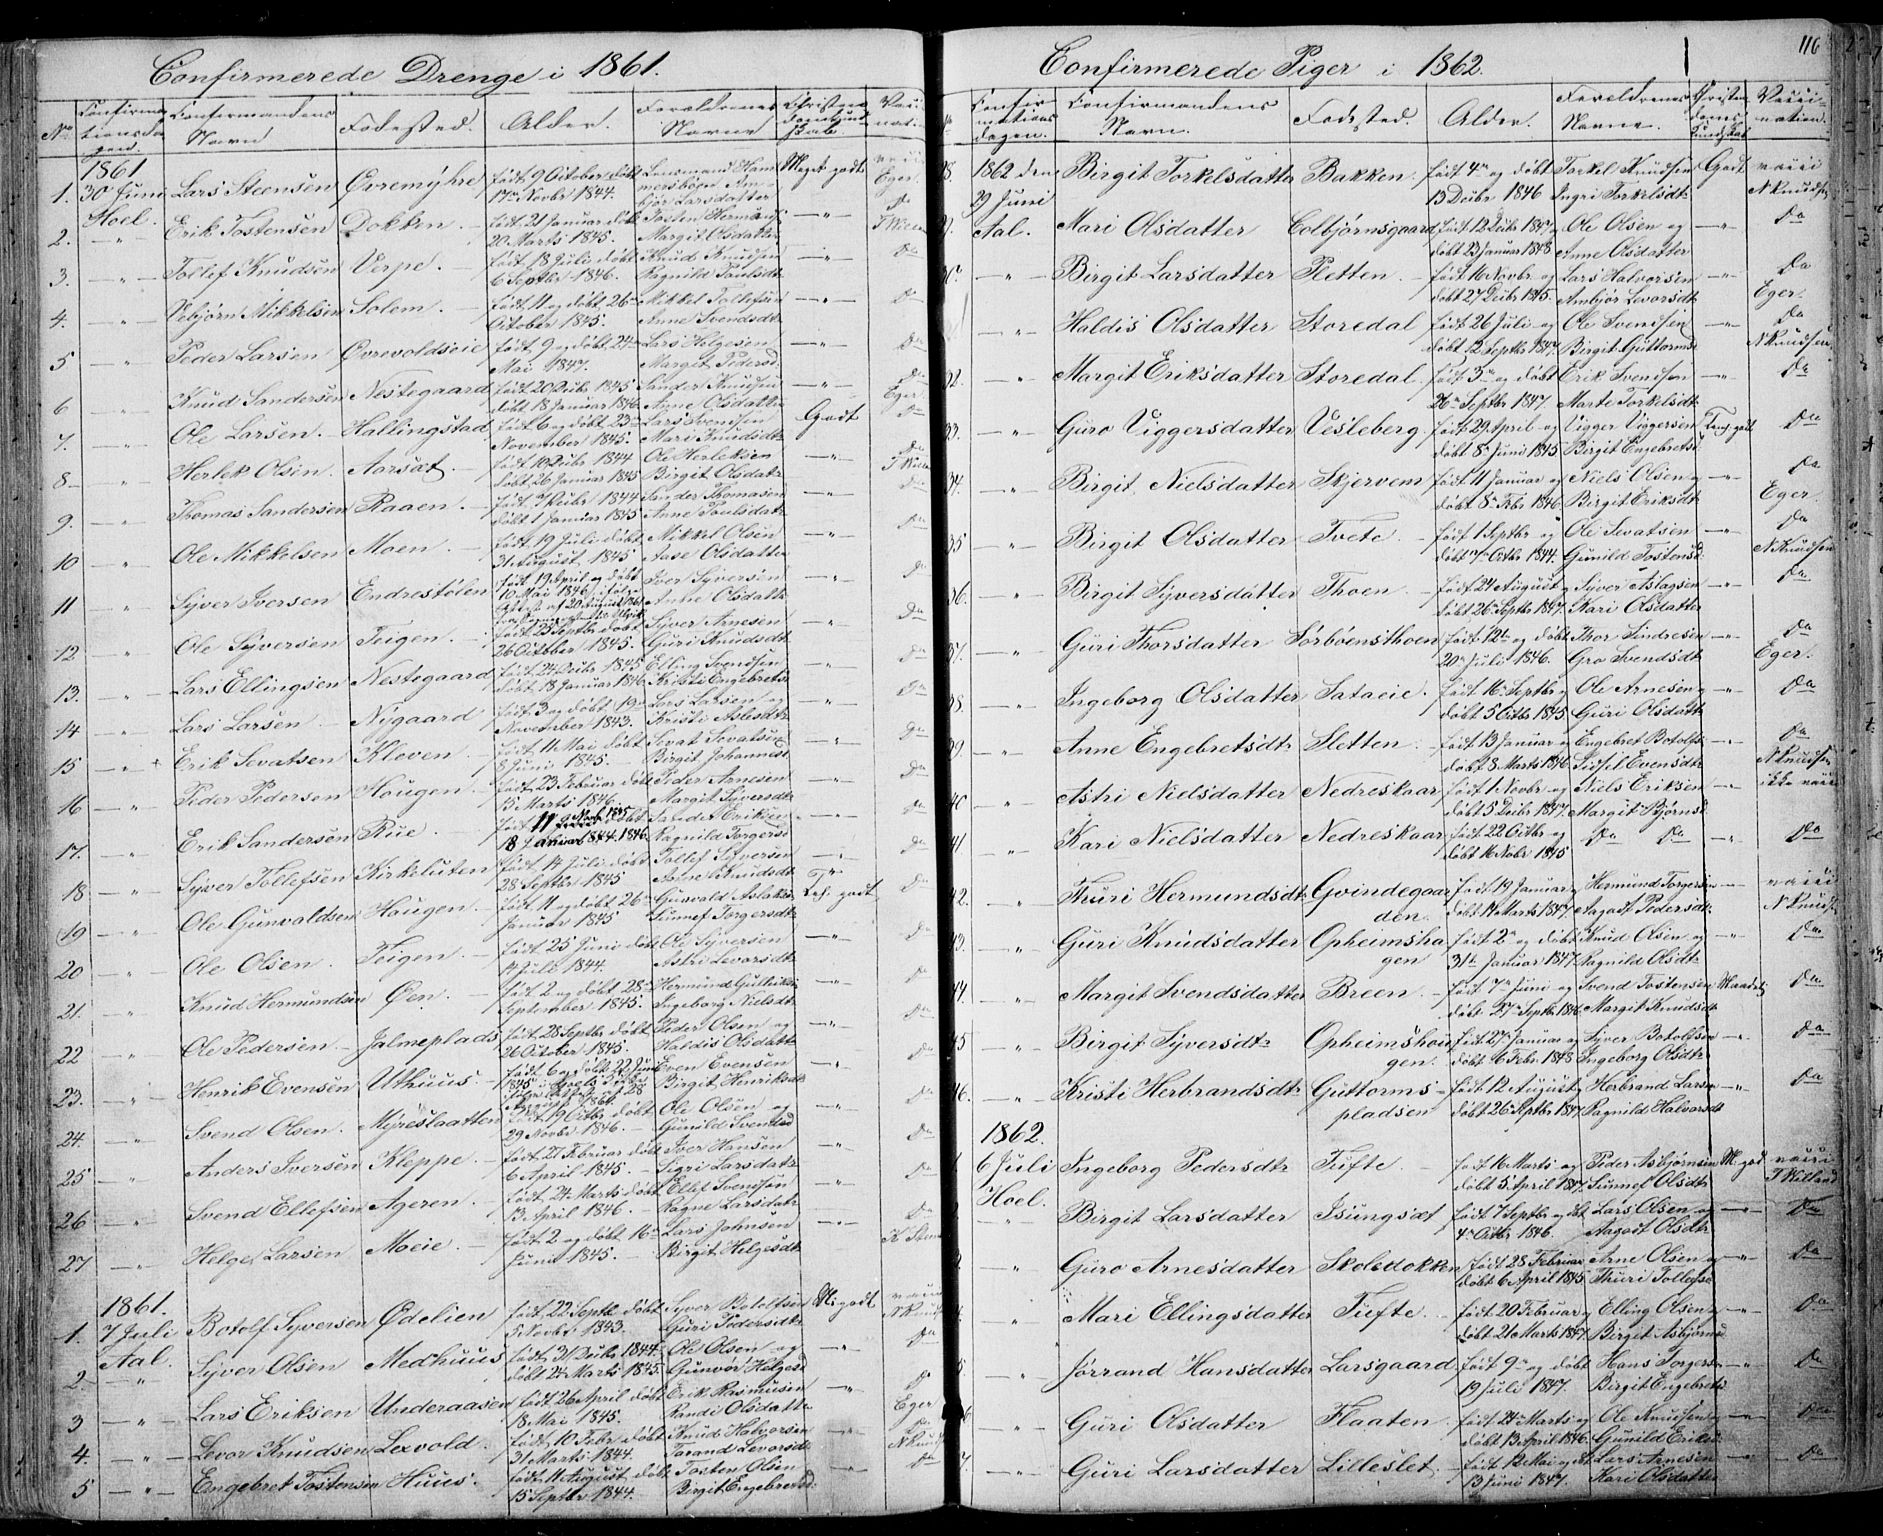 Confirmerede Drenge i 1861.
No Confirmationsdagen. Confirmandens Navn Fødested. Alder. Forældrenes Navne Christendomskundskab Vaccination
1861
1. 30 Juni Lars Steensen Øvremyhre født 9 October døbt 17de Novbr 1844. Meget godt vacci Eger
Hoel.
2. " Erik Tostensen Dokken født 21 Januar døbt 20 Marts 1845. Tosten Margit Olsdatter — " — Da
3. " Tollef Knudsen Verpe. født 18 Juli døbt 6 Septbr 1846. Knud Knudsen Ragnild Paulsdtr — " — Da
4. " Vebjørn Mikkelsen Solem. født 11 og døbt 26 October 1845. Mikkel Tollefsen Anne Svendsdtr — " — Da
5 " Peder Larsen Øvrevoldseie født 9 og døbt 24 Mai 1847. Lars Helgesen Margit Pedersd — " — Da
6 " Knud Sandersen Nestegaard født 20 Decbr 1845 døbt 18 Januar 1846 Sander Knudsen Anne Olsdatter — " — Da Eger.
7. " Ole Larsen. Hallingstad født 6 og døbt 23 November 1845. Lars Svendsen Mari Knudsdtr Godt Da
8 " Herlek Olsen. Aarsæt. født 10 Decbr 1844 døbt 26 Januar 1845 Ole Herleksen Birgit Olsdatr — " — Da
9. " Thomas Sandersen Raaen. født 7 Decbr 1844 døbt 1 Januar 1845 Sander Thomasen Anne Paulsdatr — " — Da
10 " Ole Mikkelsen Moen. født 19 Juli døbt 31 August 1845 Mikkel Olsen Aase Olsdatter — " — Da
11 " Syver Iversen Endrestølen født 19 April og døbt 10 Mai 1846 ifølge Attest af 20 August 1861 Iver Syversen Anne Olsdatr — " — Da
12 " Ole Syversen Teigen. født 25 Septbr døbt 26 October 1845. Syver Arnesen Guri Knudsdtr — " — Da
13. " Lars Ellingsen Nestegaard født 24 Decbr 1845 døbt 18 Januar 1846 Elling Svendsen Kristi Engebretsd — " — Da
14 " Lars Larsen Nygaard født 3 og døbt 19 November 1843. Lars Larsen og Kristi — " — Da
15 " Erik Sevatsen Kleven. født 11 Mai døbt 8 Juni 1845 Sevat Sevatsen Birgit Johannesd — " — Da
16 " Peder Pedersen Hougen. født 23 Februar døbt 15 Marts 1846. Peder Arnesen Margit Syversdtr — " — Da
17. " Erik Sandersen Røe. født 11 Novb 1845 døbt 18 Januar 1846. Sander Eriksen Ragnild Torgersd — " — Da
18. " Syver Tollefsen Kirkeluten født 14 Juli døbt 28 Septbr 1845 Tollef Syversen Anne Knudsdtr — " — Da
19 " Ole Gunvaldsen Haugen. født 11 og døbt 26 Januar 1845 Gunvald Aslaks Sinnef Torgersdtr Teml. godt Da
20 " Ole Olsen. Teigen. født 25 Juni døbt 14 Juli 1844. Ole Syversen Astri Levorsdtr — " — Da
21. " Knud Hermundsen Øen. født 2 og døbt 28 September 1845. Hermund Gulliks Ingeborg Nielsdtr — " — Da
22 " Ole Pedersen Jalmeplads født 28 Septbr døbt 26 October 1845. Peder Olsen og Haldis Olsdatr — " — Da
23. " Henrik Evensen Uthuus født 6 og døbt 22 Juni 1845 Even Evensen Birgit Henriksdtr — " — Da
24. " Svend Olsen. Myreslaatten født 19 Octbr døbt 29 Novbr 1846. Ole Olsen og Gunild Svendsd — " — Da
25 " Anders Iversen Kleppe. født 27 Februar døbt 6 April 1845. Iver Hansen Sigri Larsdatr — " — Da
26 " Svend Ellefsen Ageren. født 24 Marts døbt 13 April 1846. Ellef Svendsen Ragne Larsdatr — " — Da
27 " Helge Larsen Moeie. født 2 og døbt 16 Juni 1845. Lars Johnsen Birgit Helgesdtr — " —
1861.
1. 7 Juli Botolf Syversen Ødelien født 22 Septb døbt 5 Novbr 1843. Syver Botolfsen Guri Pedersdtr M. godt vacci
Aal.
2. " Syver Olsen Medhuus født 31 Decbr 1844 døbt 24 Marts 1845. Ole Olsen og Gunvor Helgesd — " — Da
3 " Lars Eriksen Underaasen født 26 April døbt 18 Mai 1845. Erik Rasmusen Randi Olsdatter — " — Da Eger
4. " Levor Knudsen Lexvold. født 10 Febr døbt 31 Marts 1844. Knud Halvorsen Tarand Levorsdtr — " — Da
5 " Engebret Tostensen Huus. født 11 August døbt 15 Septbr 1844. Tosten Olsen Birgit Engebretsd — " — Da
Confirmerede Piger i 1862.
116
Confirmationsdagen. Confirmandens Navn. Fødested. Alder. Forældrenes Navne. Christendoms Kundskab Vaccination.
28. 1862 den 29 Juni Birgit Torkelsdatter Bakken. født 4 og døbt 13 Decbr 1846 Torkel Knudsen Ingri Torkelsdtr Godt vacci N Knudsen
29. Aal. Mari Olsdatter Colbjørnsgaard født 12 Decbr 1847 døbt 23 Januar 1848 Ole Olsen og Anne Olsdatter — " — Da
30. " Birgit Larsdatter Sletten født 16 Novbr og døbt 27 Decbr 1845. Lars Halvorsen Ambjør Levorsdtr — " — Da Eger.
" Haldis Olsdatter Storedal født 26 Juli og døbt 12 Septbr 1847. Ole Svendsen Birgit Guttormsd — " — Da N Knudsen
32. " Margit Eriksdatter Storedal. født 3 og døbt 26 Septbr 1847 Erik Svendsen Marte Torkelsdtr — " — Da
33. " Guro Viggersdatter Vesleberg. født 29 April og døbt 8 Juni 1845 Vigger Viggersen Birgit Engebretsd Teml. godt Da
34. " Birgit Nielsdatter Skjervem født 11 Januar og døbt 8 Febr 1846 Niels Olsen og Birgit Eriksdtr — " — Da Eger.
35 " Birgit Olsdatter Tvete. født 1 Septbr og døbt 7 Octbr 1844. Ole Sevatsen Gunild Tostensd — " — Da N Knudsen
36. " Birgit Syversdatter Thoen. født 24 August og døbt 26 Septbr 1847. Syver Aslagsen Kari Olsdatter — " — Da
37. " Guri Thorsdatter Sørbøensthoen født 12te og døbt 20 Juli 1846. Thor Sindresen Gro Svendsdtr — " — Da Eger.
38. " Ingeborg Olsdatter Sataeie. født 16 Septbr og døbt 5 Octbr 1845 Ole Arnesen og Guri Olsdatr — " — Da
39. " Anne Engebretsdtr Sletten. født 13 Januar og døbt 8 Marts 1846 Engebret Botolfs Sidsel Evensdtr — " — Da N Knudsen
40 " Astri Nielsdatter Nedreskaar født 1 Novbr og døbt 5 Decbr 1847. Niels Eriksen Margit Bjørnsd — " — ikke vacci
41 " Kari Nielsdatter Nedreskaar født 22 Octbr og døbt 16 Nobr 1845 Da Da " Da
42. " Thuri Hermundsdtr Gvindegaarden. født 19 Januar og døbt 14 Marts 1847. Hermund Torgersen Aagodt Pedersdtr — " — vacci N Knuds
43. " Guri Knudsdatter Opheimshagen født 2 og døbt 31te Januar 1847. Knud Olsen og Ragnild Olsdtr — " — Da
44. " Margit Svendsdatter Breen. født 7 Juni og døbt 27 Septbr 1846. Svend Tostensen Margit Knudsdtr Maadel. Da
45 " Birgit Syversdtr Opheimshougen. født 27 Januar og døbt 6 Febr 1848 Syver Botolfsen Ingeborg Olsdtr — " — Da
46. " Kristi Herbrandsdtr Guttormspladsen født 12 August døbt 26 Septbr 1847. Herbrand Larsen Ragnild Halvorsdt — " — Da
1862.
1 6 Juli Ingeborg Pedersdtr Tufte. født 16 Marts og døbt 5 April 1847. Peder Asbjørnsen Sunnef Olsdtr M. god vacci T Kielland
Hoel.
2 " Birgit Larsdatter Isungsæt født 7 Septbr og dbt 4 Octbr 1846. Lars Olsen og Aagodt Olsdtr — " — Da
3 " Guro Arnesdatter Skoledokken født 28 Februar døbt 6 April 1845 Arne Olsen og Thuri Tollefsd — " — Da
4. " Mari Ellingsdatter Tufte. født 20 Februar og døbt 21 Marts 1847. Elling Olsen og Birgit Asbjørnsd — " — Da
5 " Jørrand Hansdatter Larsgaard født 9 og døbt 19 Juli 1847. Hans Torgers Birgit Engebretsd — " — Da
6. " Guri Olsdatter Flaaten. født 24 Marts og døbt 13 April 1846. Ole Knudsen og Gunild Eriksd — " — Da
7 " Guri Larsdatter Lilleslet. født 12 Mai og dbt 13 Juni 1847. Lars Arnesen Kari Olsdatter — " — Da